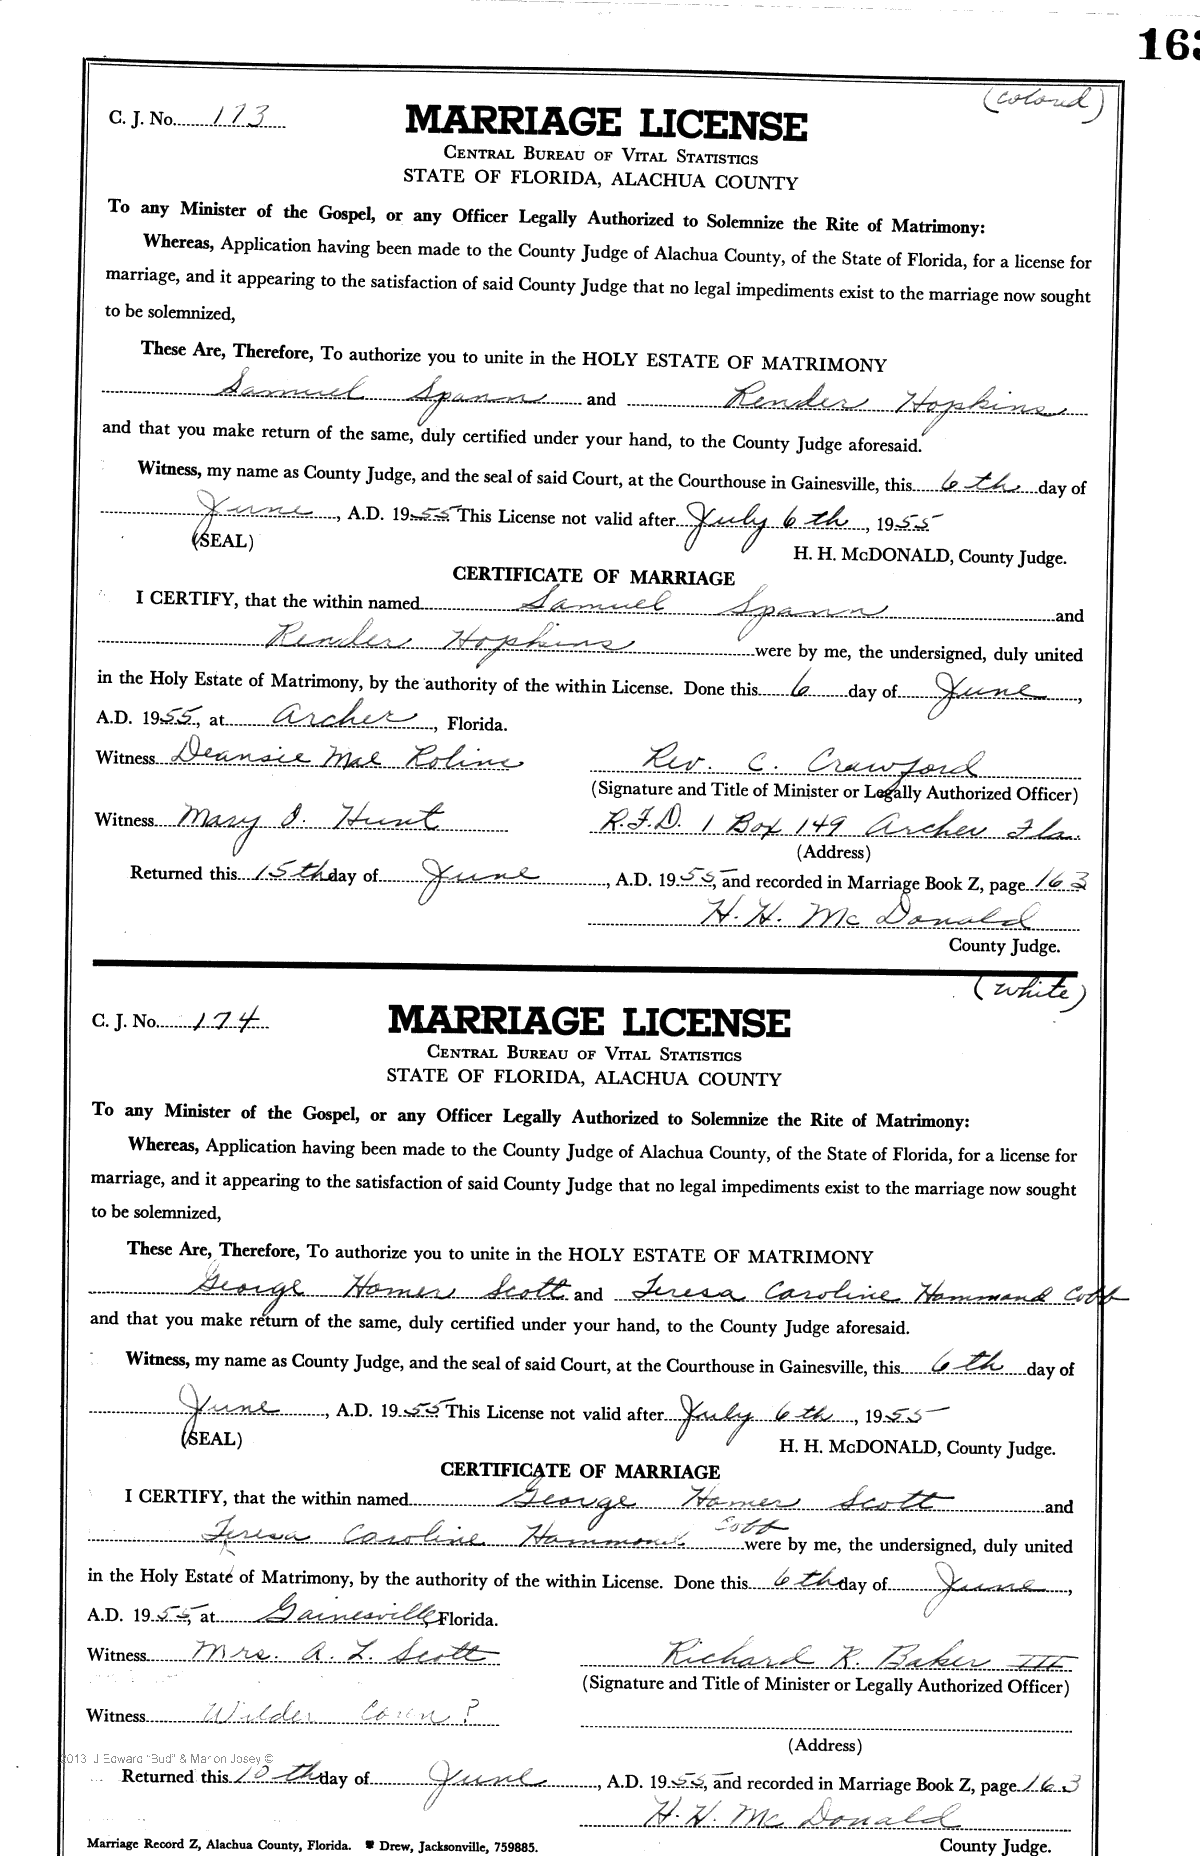 163
(colored)
C. J. No. 173
MARRIAGE LICENSE
CENTRAL BUREAU OF VITAL STATISTICS
STATE OF FLORIDA, ALACHUA COUNTY
To any Minister of the Gospel, or any Officer Legally Authorized to Solemnize the Rite of Matrimony:
Whereas, Application having been made to the County Judge of Alachua County, of the State of Florida, for a license for
marriage, and it appearing to the satisfaction of said County Judge that no legal impediments exist to the marriage now sought
to be solemnized,
These Are, Therefore, To authorize you to unite in the HOLY ESTATE OF MATRIMONY
Samuel Spann and Render Hopkins
and that you make return of the same, duly certified under your hand, to the County Judge aforesaid.
Witness, my name as County Judge, and the seal of said Court, at the Courthouse in Gainesville, this 6th day of
June, A.D. 1955 This License not valid after July 6th, 1955
(SEAL)
H. H. McDONALD, County Judge.
CERTIFICATE OF MARRIAGE
I CERTIFY, that the within named Samuel Spann and
Render Hopkins were by me, the undersigned, duly united
in the Holy Estate of Matrimony, by the authority of the within License. Done this 6 day of June,
A.D. 1955, at Archer, Florida.
Witness Deansie Mae Roline Rev. C. Crawford
(Signature and Title of Minister or Legally Authorized Officer)
Witness Mary O. Hunt R.F.D. 1 Box 149 Archer Fla.
(Address)
Returned this 15th day of June, A.D. 1955, and recorded in Marriage Book Z, page 163
H. H. McDonald
County Judge.
(white)
C. J. No. 174
MARRIAGE LICENSE
CENTRAL BUREAU OF VITAL STATISTICS
STATE OF FLORIDA, ALACHUA COUNTY
To any Minister of the Gospel, or any Officer Legally Authorized to Solemnize the Rite of Matrimony:
Whereas, Application having been made to the County Judge of Alachua County, of the State of Florida, for a license for
marriage, and it appearing to the satisfaction of said County Judge that no legal impediments exist to the marriage now sought
to be solemnized,
These Are, Therefore, To authorize you to unite in the HOLY ESTATE OF MATRIMONY
George Homer Scott and Teresa Caroline Hammond Cobb
and that you make return of the same, duly certified under your hand, to the County Judge aforesaid.
Witness, my name as County Judge, and the seal of said Court, at the Courthouse in Gainesville, this 6th day of
June, A.D. 1955 This License not valid after July 6th, 1955
(SEAL)
H. H. McDONALD, County Judge.
CERTIFICATE OF MARRIAGE
I CERTIFY, that the within named George Homer Scott and
Teresa Caroline Hammond Cobb were by me, the undersigned, duly united
in the Holy Estate of Matrimony, by the authority of the within License. Done this 6th day of June,
A.D. 1955, at Gainesville, Florida.
Witness Mrs. A. L. Scott Richard R. Baker III
(Signature and Title of Minister or Legally Authorized Officer)
Witness Wilder
(Address)
2013 J Edward "Bud" & Marion Josey ©
Returned this 10th day of June, A.D. 1955, and recorded in Marriage Book Z, page 163
H. H. McDonald
Marriage Record Z, Alachua County, Florida. Drew, Jacksonville, 759885. County Judge.